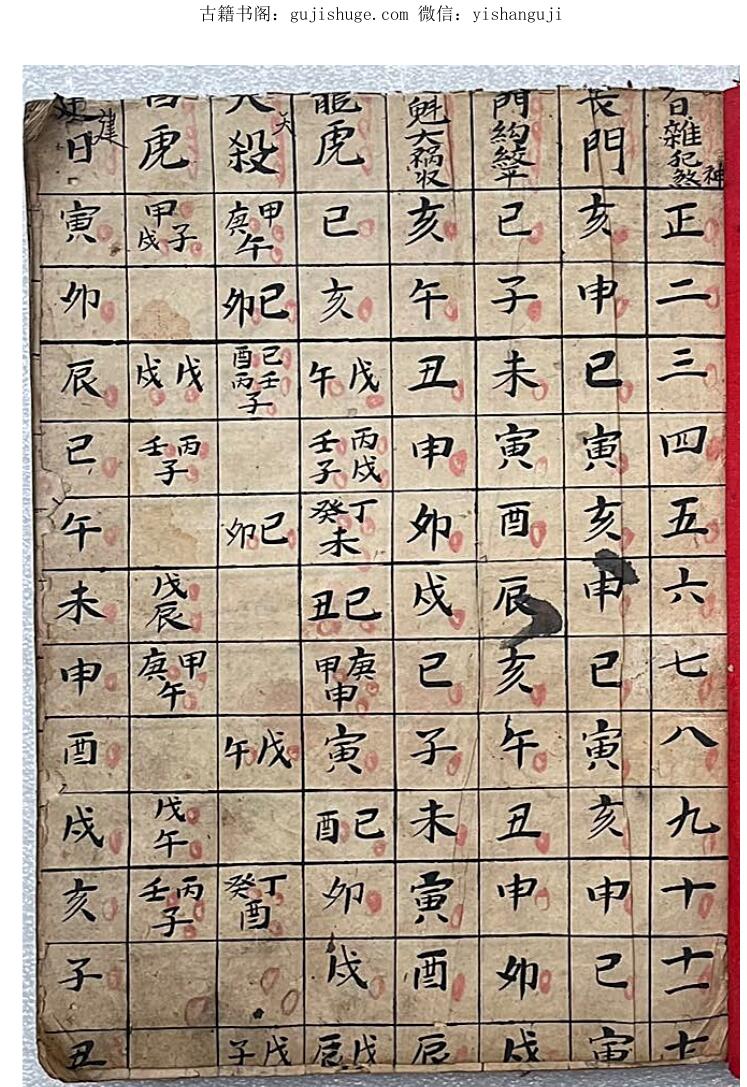 古籍书阁：gujishuge.com 微信：yishanguji
雜犯煞神 正 二 三 四 五 六 七 八 九 十 十一
門 亥 申 巳 寅 亥 申 巳 寅 亥 申 巳 寅
門 絞 平 巳 子 未 寅 酉 辰 亥 午 丑 申 卯 戌
魁大禍收 亥 午 丑 申 卯 戌 巳 子 未 寅 酉 辰
龍虎 巳 亥 戊午 丙戌壬子 丁癸未 己丑 庚甲申 寅 己酉 卯 戌 戊辰
天殺 天 甲庚午 己卯 己壬酉丙子 己卯 戊午 丁癸酉 戊子
白虎 甲子戌 戊戌 丙壬子 戊辰 甲庚午 戊午 丙壬子
建日 建 寅 卯 辰 巳 午 未 申 酉 戌 亥 子 丑